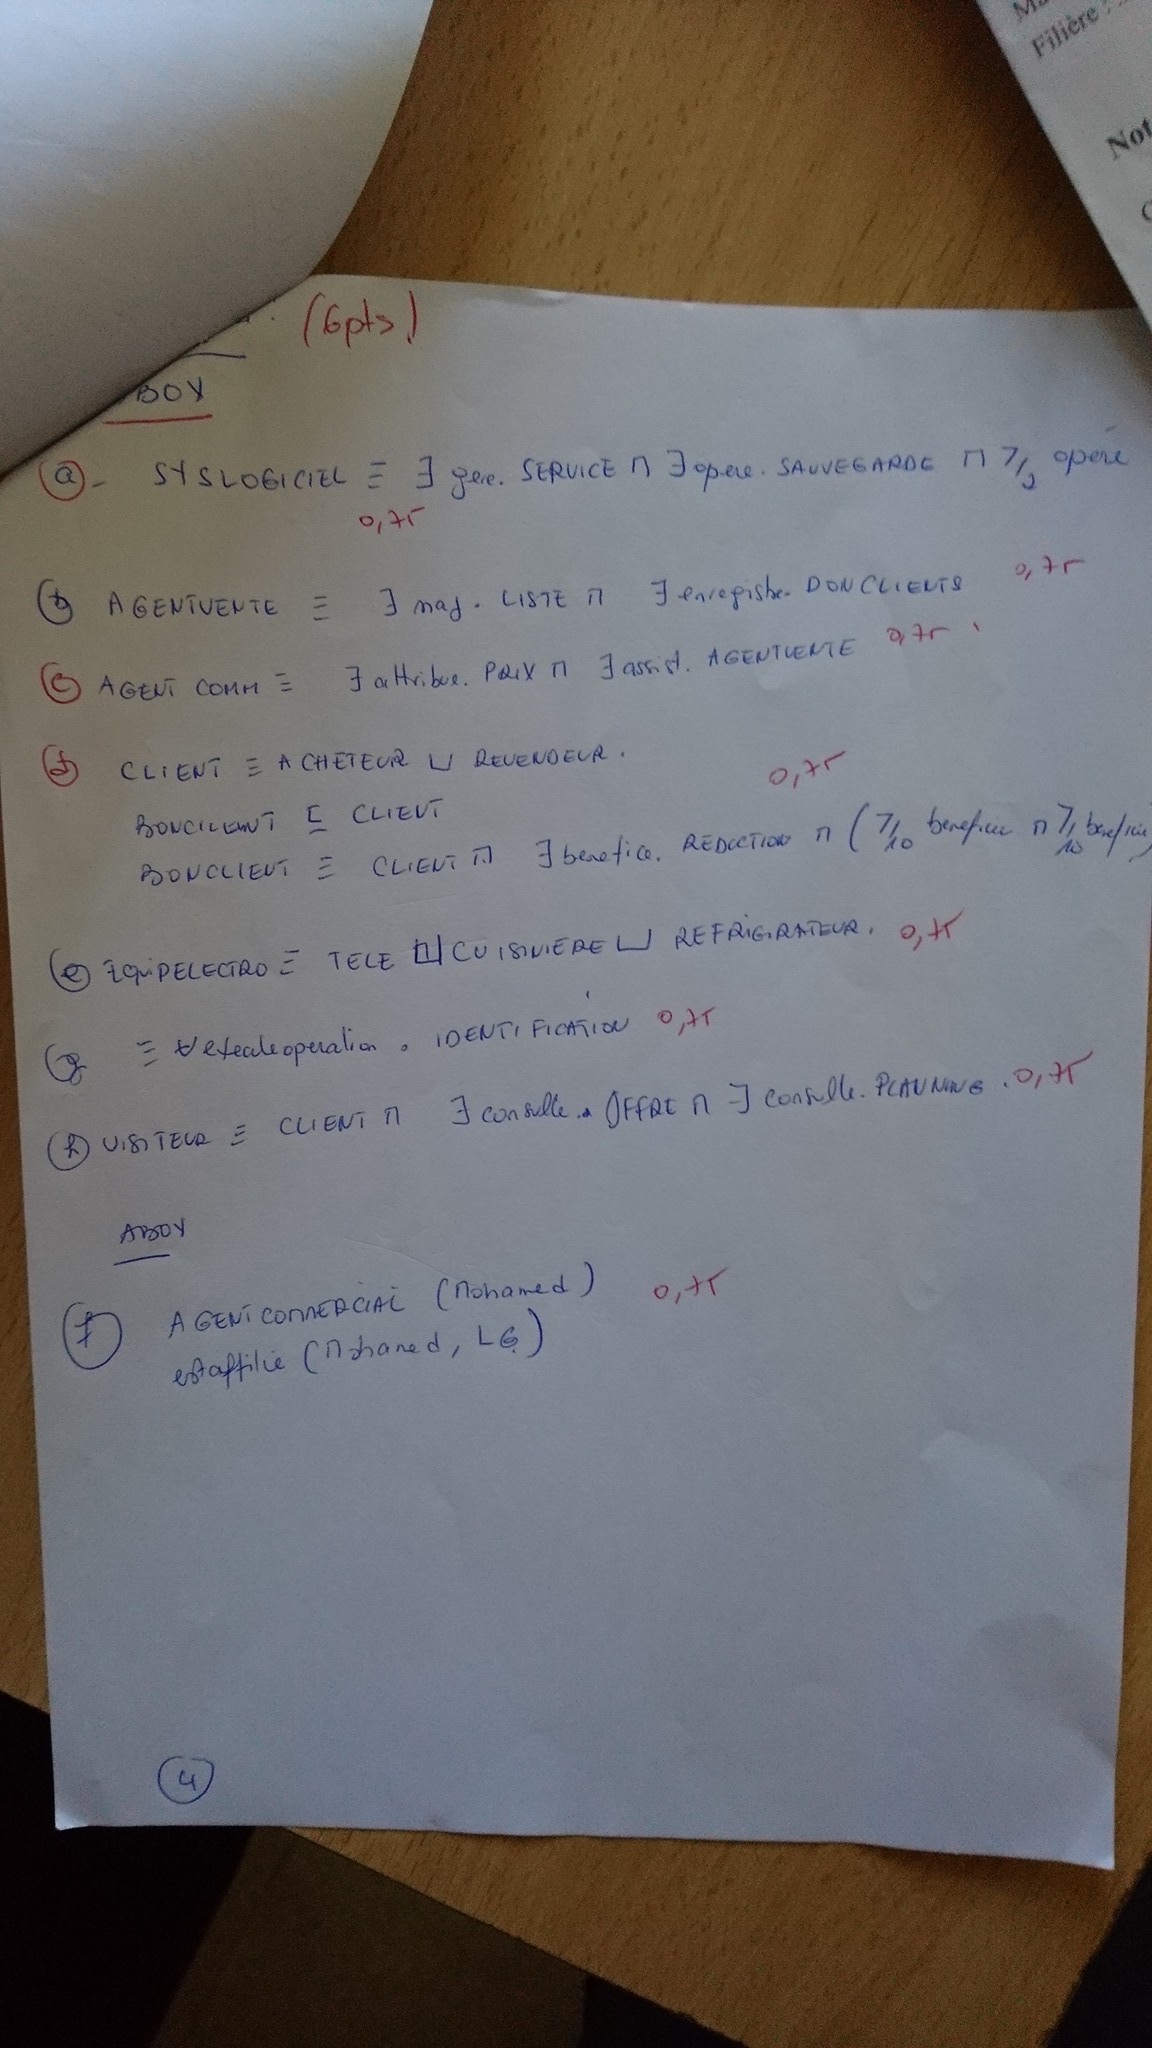 Filière :
Not
(6pts)
BOX
a - SYSLOGICIEL ≡ ∃ gere. SERVICE ⊓ ∃ opere. SAUVEGARDE ⊓ ≥2 opere
0,75
b AGENTVENTE ≡ ∃ maj. LISTE ⊓ ∃ enregistre. DONCLIENTS 0,75
c AGENT COMM ≡ ∃ attribue. PRIX ⊓ ∃ assist. AGENTVENTE 0,75
d CLIENT ≡ ACHETEUR ⊔ REVENDEUR.
0,75
BONCLIENT ⊑ CLIENT
BONCLIENT ≡ CLIENT ⊓ ∃ benefice. REDUCTION ⊓ (≥10 benefice ⊓ ≥10 benefice)
e EQUIPELECTRO ≡ TELE ⊔ CUISINIERE ⊔ REFRIGIRATEUR. 0,75
g ≡ ∀ operation. IDENTIFICATION 0,75
h VISITEUR ≡ CLIENT ⊓ ∃ consulte. OFFRE ⊓ ∃ consulte. PLANNING. 0,75
ABOX
f AGENTCOMMERCIAL (Mohamed) 0,75
estaffilie (Mohamed, LG)
4